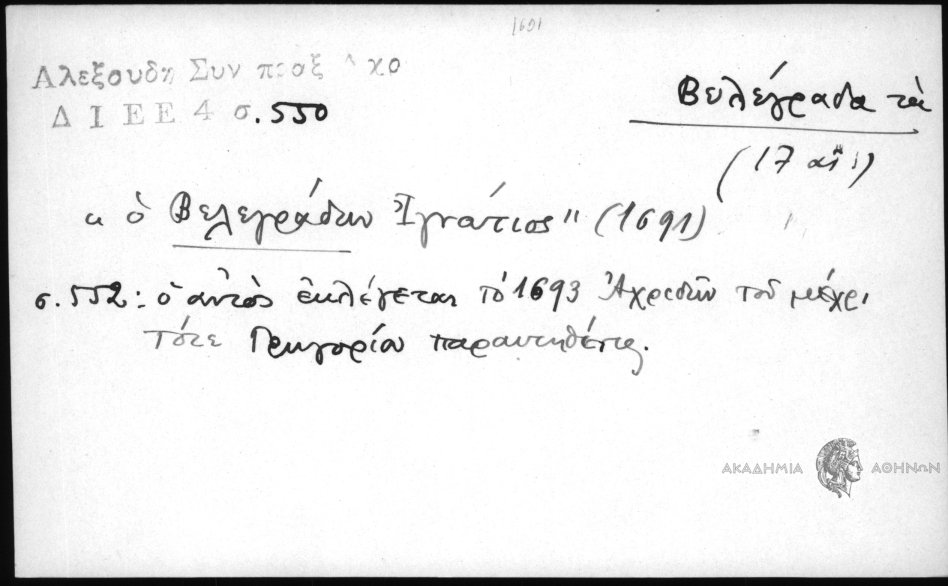 1691
Αλεξουδη Συν πραξ Αχο
ΔΙΕΕ 4 σ. 550
Βελέγραδα τὰ
(17 αἰ.)
"ὁ Βελεγράδων Ἰγνάτιος" (1691)
σ. 552: ὁ αὐτὸς ἐκλέγεται τὸ 1693 Ἀχριδῶν τοῦ μέχρι
τότε Γρηγορίου παραιτηθέντος.
ΑΚΑΔΗΜΙΑ ΑΘΗΝΩΝ